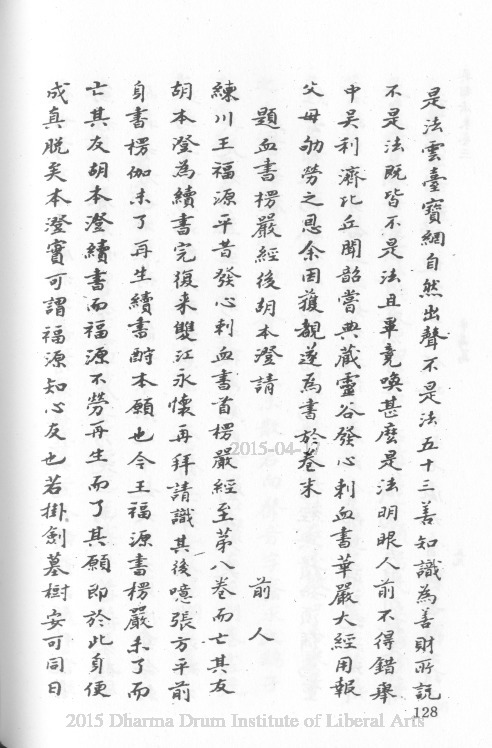 是法雲臺寶網自然出聲不是法五十三善知識為善財所說
不是法既皆不是法且畢竟喚甚麼是法明眼人前不得錯舉
中吳利濟比丘聞韶嘗典藏靈谷發心刺血書華嚴大經用報
父母劬勞之恩余因獲觀遂為書於卷末
題血書楞嚴經後胡本澄請　　前人
練川王福源平昔發心刺血書首楞嚴經至第八卷而亡其友
胡本澄為續書完復來雙江永懷再拜請識其後噫張方平前
身書楞伽未了再生續書酧本願也今王福源書楞嚴未了而
亡其友胡本澄續書而福源不勞再生而了其願即於此身便
成真脫矣本澄實可謂福源知心友也若掛劍墓樹安可同日
128
2015-04-17
2015 Dharma Drum Institute of Liberal Arts